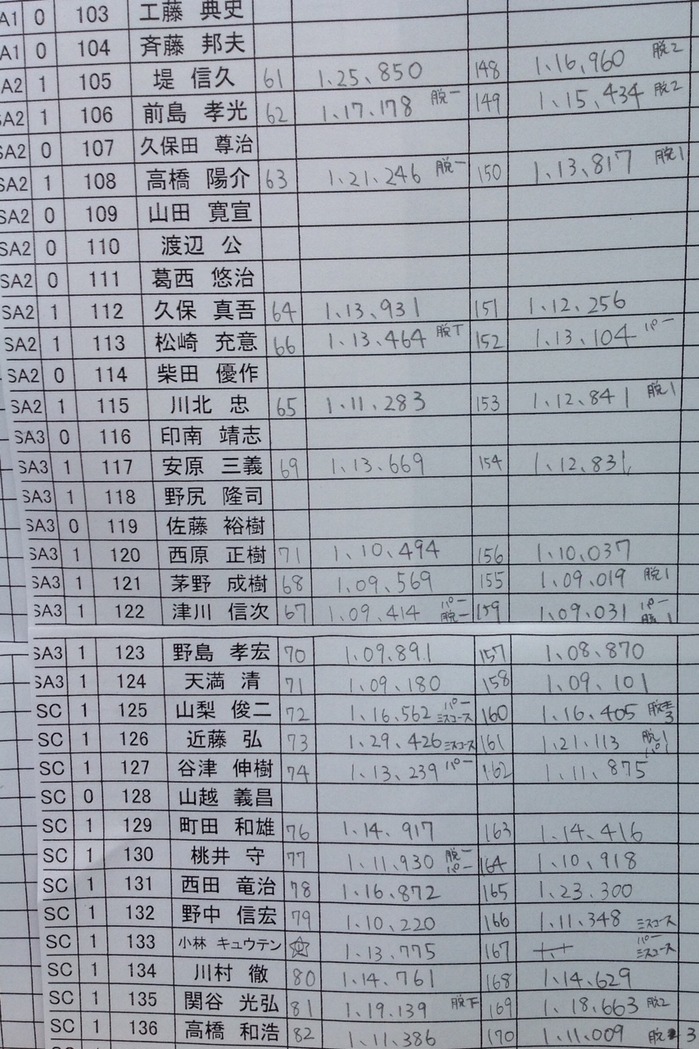 A1 0 103 工藤 典史
A1 0 104 斉藤 邦夫
A2 1 105 堤 信久 61 1.25.850 148 1.16.960 脱2
SA2 1 106 前島 孝光 62 1.17.178 脱一 149 1.15.434 脱2
SA2 0 107 久保田 尊治
SA2 1 108 高橋 陽介 63 1.21.246 脱一 150 1.13.817 脱1
SA2 0 109 山田 寛宣
SA2 0 110 渡辺 公
SA2 0 111 葛西 悠治
SA2 1 112 久保 真吾 64 1.13.931 151 1.12.256
SA2 1 113 松崎 充意 66 1.13.464 脱T 152 1.13.104 パー
SA2 0 114 柴田 優作
SA2 1 115 川北 忠 65 1.11.283 153 1.12.841 脱1
SA3 0 116 印南 靖志
SA3 1 117 安原 三義 69 1.13.669 154 1.12.831
SA3 1 118 野尻 隆司
SA3 0 119 佐藤 裕樹
SA3 1 120 西原 正樹 71 1.10.494 156 1.10.037
SA3 1 121 茅野 成樹 68 1.09.569 155 1.09.019 脱1
SA3 1 122 津川 信次 67 1.09.414 パー 脱一 159 1.09.031 パー 脱1
SA3 1 123 野島 孝宏 70 1.09.891 157 1.08.870
SA3 1 124 天満 清 71 1.09.180 158 1.09.101
SC 1 125 山梨 俊二 72 1.16.562 パー ミスコース 160 1.16.405 脱 3
SC 1 126 近藤 弘 73 1.29.426 ミスコース 161 1.21.113 脱1 パ1
SC 1 127 谷津 伸樹 74 1.13.239 パー 162 1.11.875
SC 0 128 山越 義昌
SC 1 129 町田 和雄 76 1.14.917 163 1.14.416
SC 1 130 桃井 守 77 1.11.930 脱一 パー 164 1.10.918
SC 1 131 西田 竜治 78 1.16.872 165 1.23.300
SC 1 132 野中 信宏 79 1.10.220 166 1.11.348 ミスコース
SC 1 133 小林 キュウテン 1.13.775 167 パー ミスコース
SC 1 134 川村 徹 80 1.14.761 168 1.14.629
SC 1 135 関谷 光弘 81 1.19.139 脱下 169 1.18.663 脱2
SC 1 136 高橋 和浩 82 1.11.386 170 1.11.009 脱 3